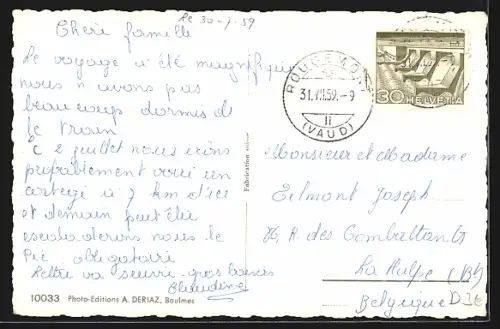 le 30-7-59
Chère famille
Le voyage a été magnifique
nous n'avons pas
beaucoup dormes ds
le train
c 2 juillet nous irons
probablement voir un
cortège à 7 km d'ici
et demain peut être
escaladerons nous le
Pic obligatoire
Lettre va suivre. gros baisers
Claudine
10033 Photo-Editions A. DERIAZ, Baulmes
Fabrication suisse
ROUGEMONT
31.VII.59.-9
(VAUD)
30 HELVETIA
Monsieur et Madame
Joseph
76, R. des Combattants
La Hulpe (Bt)
Belgique